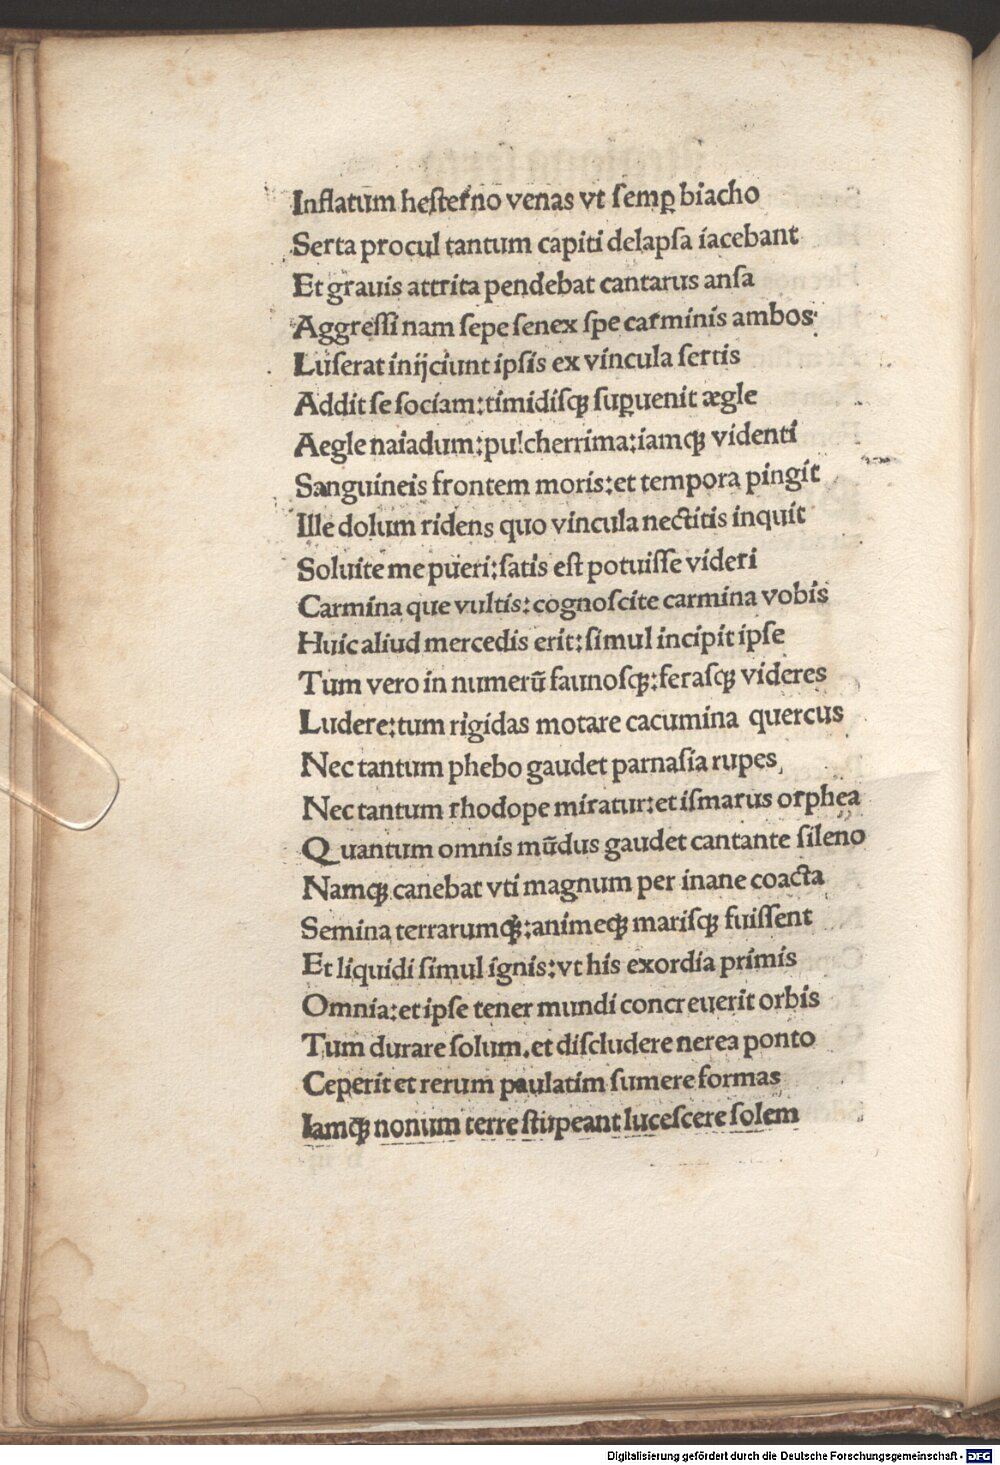 Inflatum hesterno venas vt semꝑ biacho
Serta procul tantum capiti delapsa iacebant
Et grauis attrita pendebat cantarus ansa
Aggressi nam sepe senex spe carminis ambos
Luserat inijciunt ipsis ex vincula sertis
Addit se sociam: timidisqꝫ suꝑuenit ægle
Aegle naiadum: pulcherrima: iamqꝫ videnti
Sanguineis frontem moris: et tempora pingit
Ille dolum ridens quo vincula nectitis inquit
Soluite me pueri: satis est potuisse videri
Carmina que vultis: cognoscite carmina vobis
Huic aliud mercedis erit: simul incipit ipse
Tum vero in numerū faunosqꝫ: ferasqꝫ videres
Ludere: tum rigidas motare cacumina quercus
Nec tantum phebo gaudet parnasia rupes
Nec tantum rhodope miratur: et ismarus orphea
Quantum omnis mūdus gaudet cantante sileno
Namqꝫ canebat vti magnum per inane coacta
Semina terrarumqꝫ: animeqꝫ marisqꝫ fuissent
Et liquidi simul ignis: vt his exordia primis
Omnia: et ipse tener mundi concreuerit orbis
Tum durare solum. et discludere nerea ponto
Ceperit et rerum paulatim sumere formas
Iamqꝫ nonum terre stupeant lucescere solem
Digitalisierung gefördert durch die Deutsche Forschungsgemeinschaft - DFG